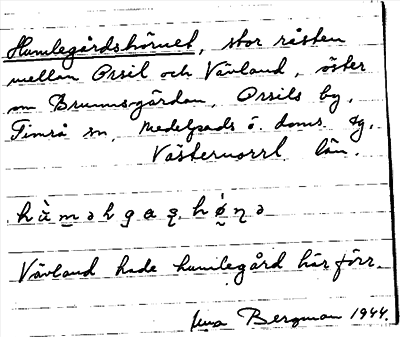 Humlegårdshörnet, stor risten
mellan Orsil och Vävland, öster
om Brunnsgården, Orsils by,
Timrå sn, Medelpads ö. doms. tg.
Västernorrl. län.
Vävland hade humlegård här förr.
Bergman 1944.